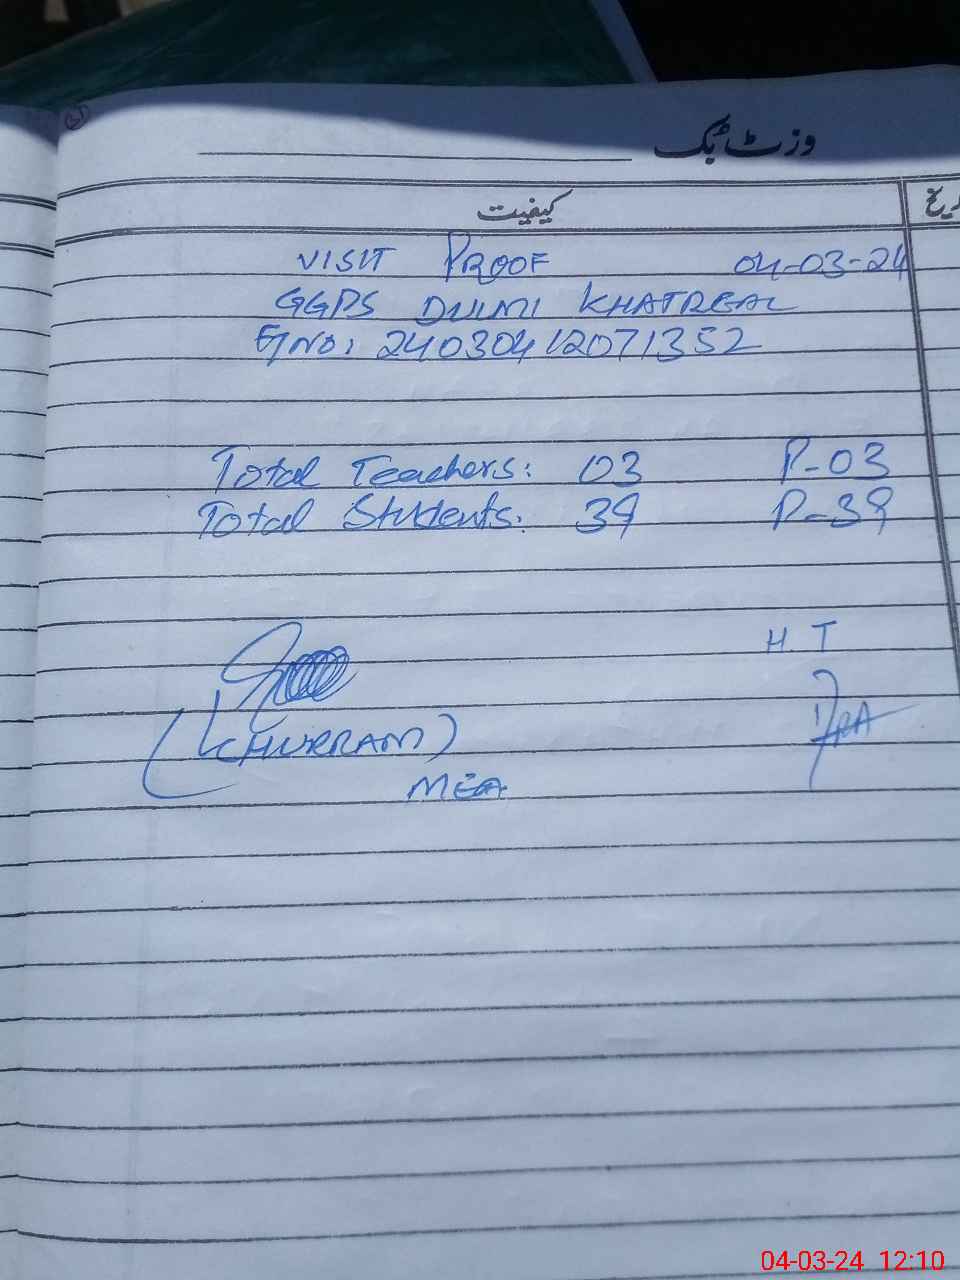 وزٹ بک
کیفیت
VISIT PROOF 04-03-24
GGPS DULMI KHATREAL
24030412071352
Total Teachers: 03 P-03
Total Students: 39 P-39
H. T
(KHURRAM)
MEA
04-03-24 12:10